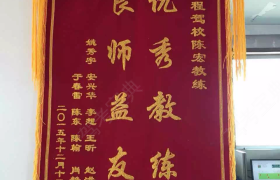 程驾校陈宏教练
优秀教练
良师益友
姚芳宇 安兴华 李超 王昕 赵
于春雷 陈东 陈翰 肖
二〇一五年十二月十